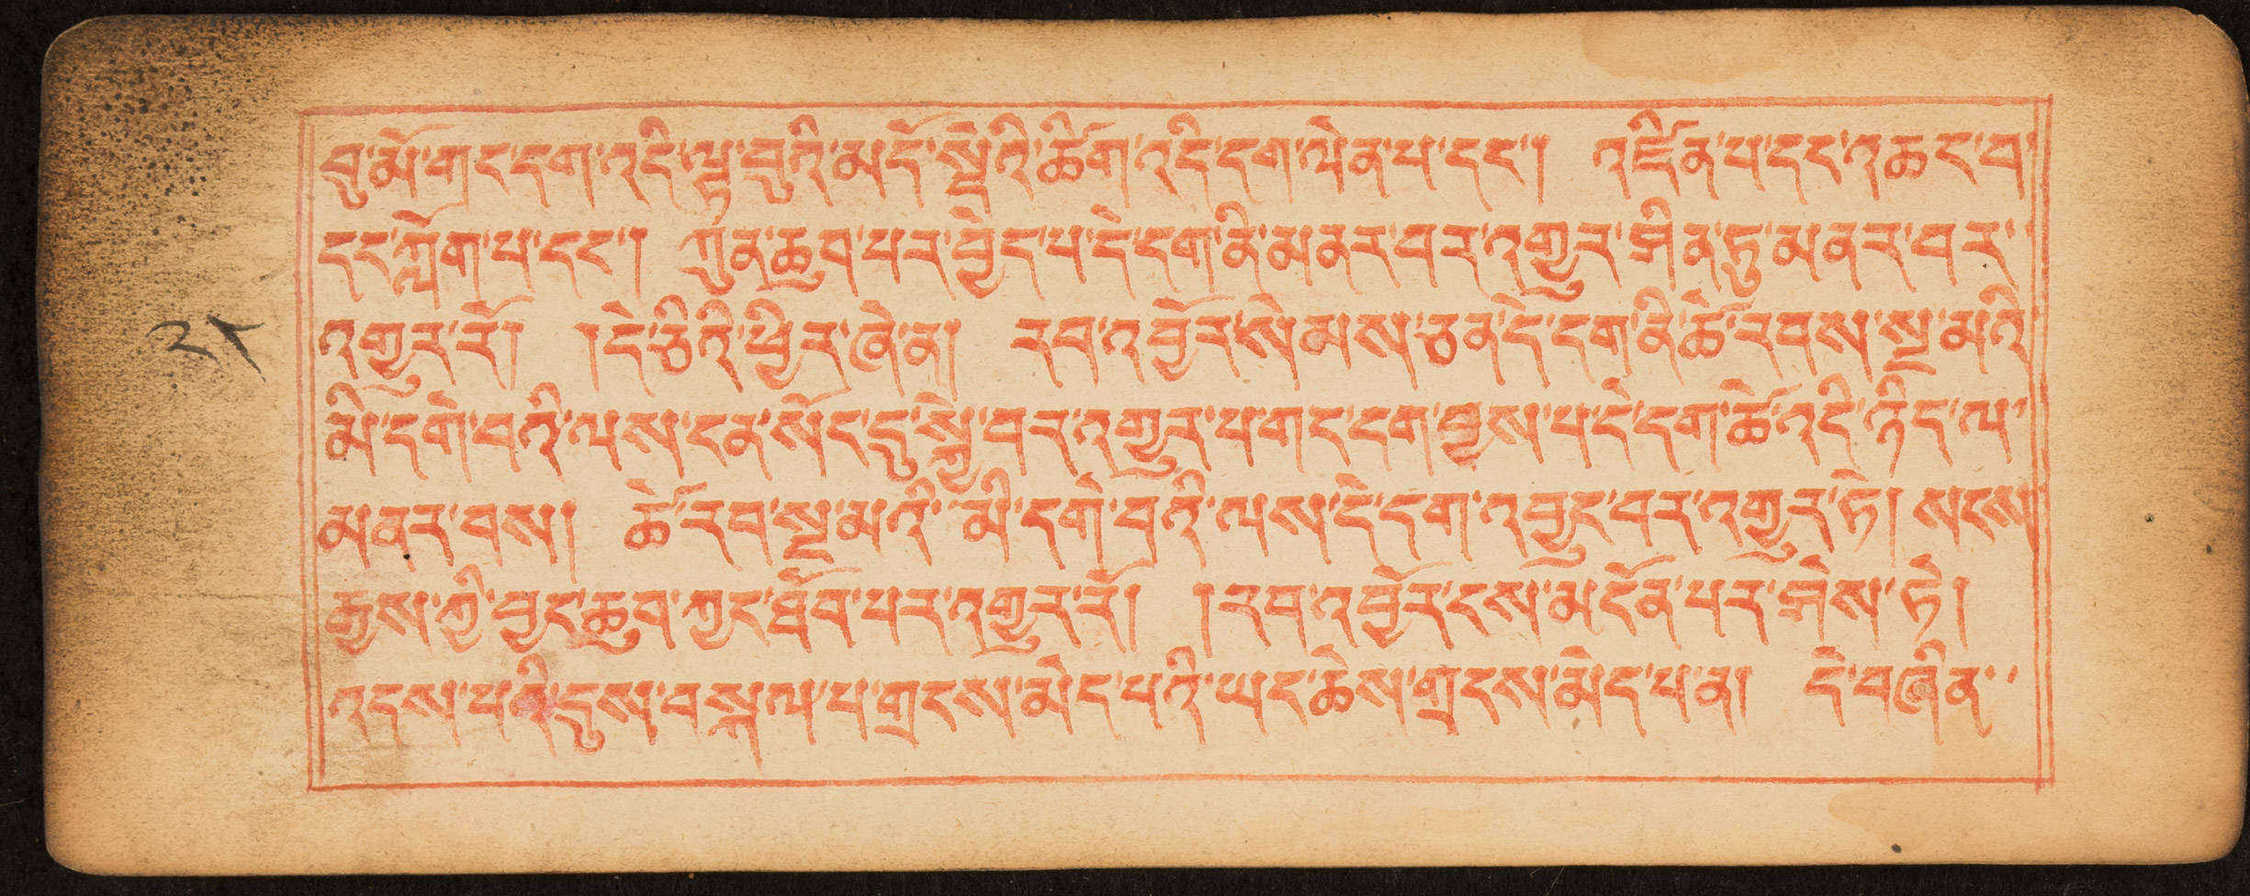 བུ་མོ་གང་དག་འདི་ལྟ་བུའི་མདོ་སྡེའི་ཚིག་འདི་དག་ལེན་པ་དང་། འཛིན་པ་དང་འཆང་བ་
དང་ཀློག་པ་དང་། ཀུན་ཆུབ་པར་བྱེད་པ་དེ་དག་ནི་མནར་བར་འགྱུར་ཤིན་ཏུ་མནར་བར་
འགྱུར་རོ། །དེ་ཅིའི་ཕྱིར་ཞེ་ན། རབ་འབྱོར་སེམས་ཅན་དེ་དག་ནི་ཚེ་རབས་སྔ་མའི་
མི་དགེ་བའི་ལས་ངན་སོང་དུ་སྐྱེ་བར་འགྱུར་པ་གང་དག་བྱས་པ་དེ་དག་ཚེ་འདི་ཉིད་ལ་
མནར་བས། ཚེ་རབ་སྔ་མའི་མི་དགེ་བའི་ལས་དེ་དག་འབྱང་བར་འགྱུར་ཏེ། སངས་
རྒྱས་ཀྱི་བྱང་ཆུབ་ཀྱང་ཐོབ་པར་འགྱུར་རོ། །རབ་འབྱོར་ངས་མངོན་པར་ཤེས་ཏེ།
འདས་པའི་དུས་བསྐལ་པ་གྲངས་མེད་པའི་ཡང་ཆེས་གྲངས་མེད་པ་ན། དེ་བཞིན་
༢༨